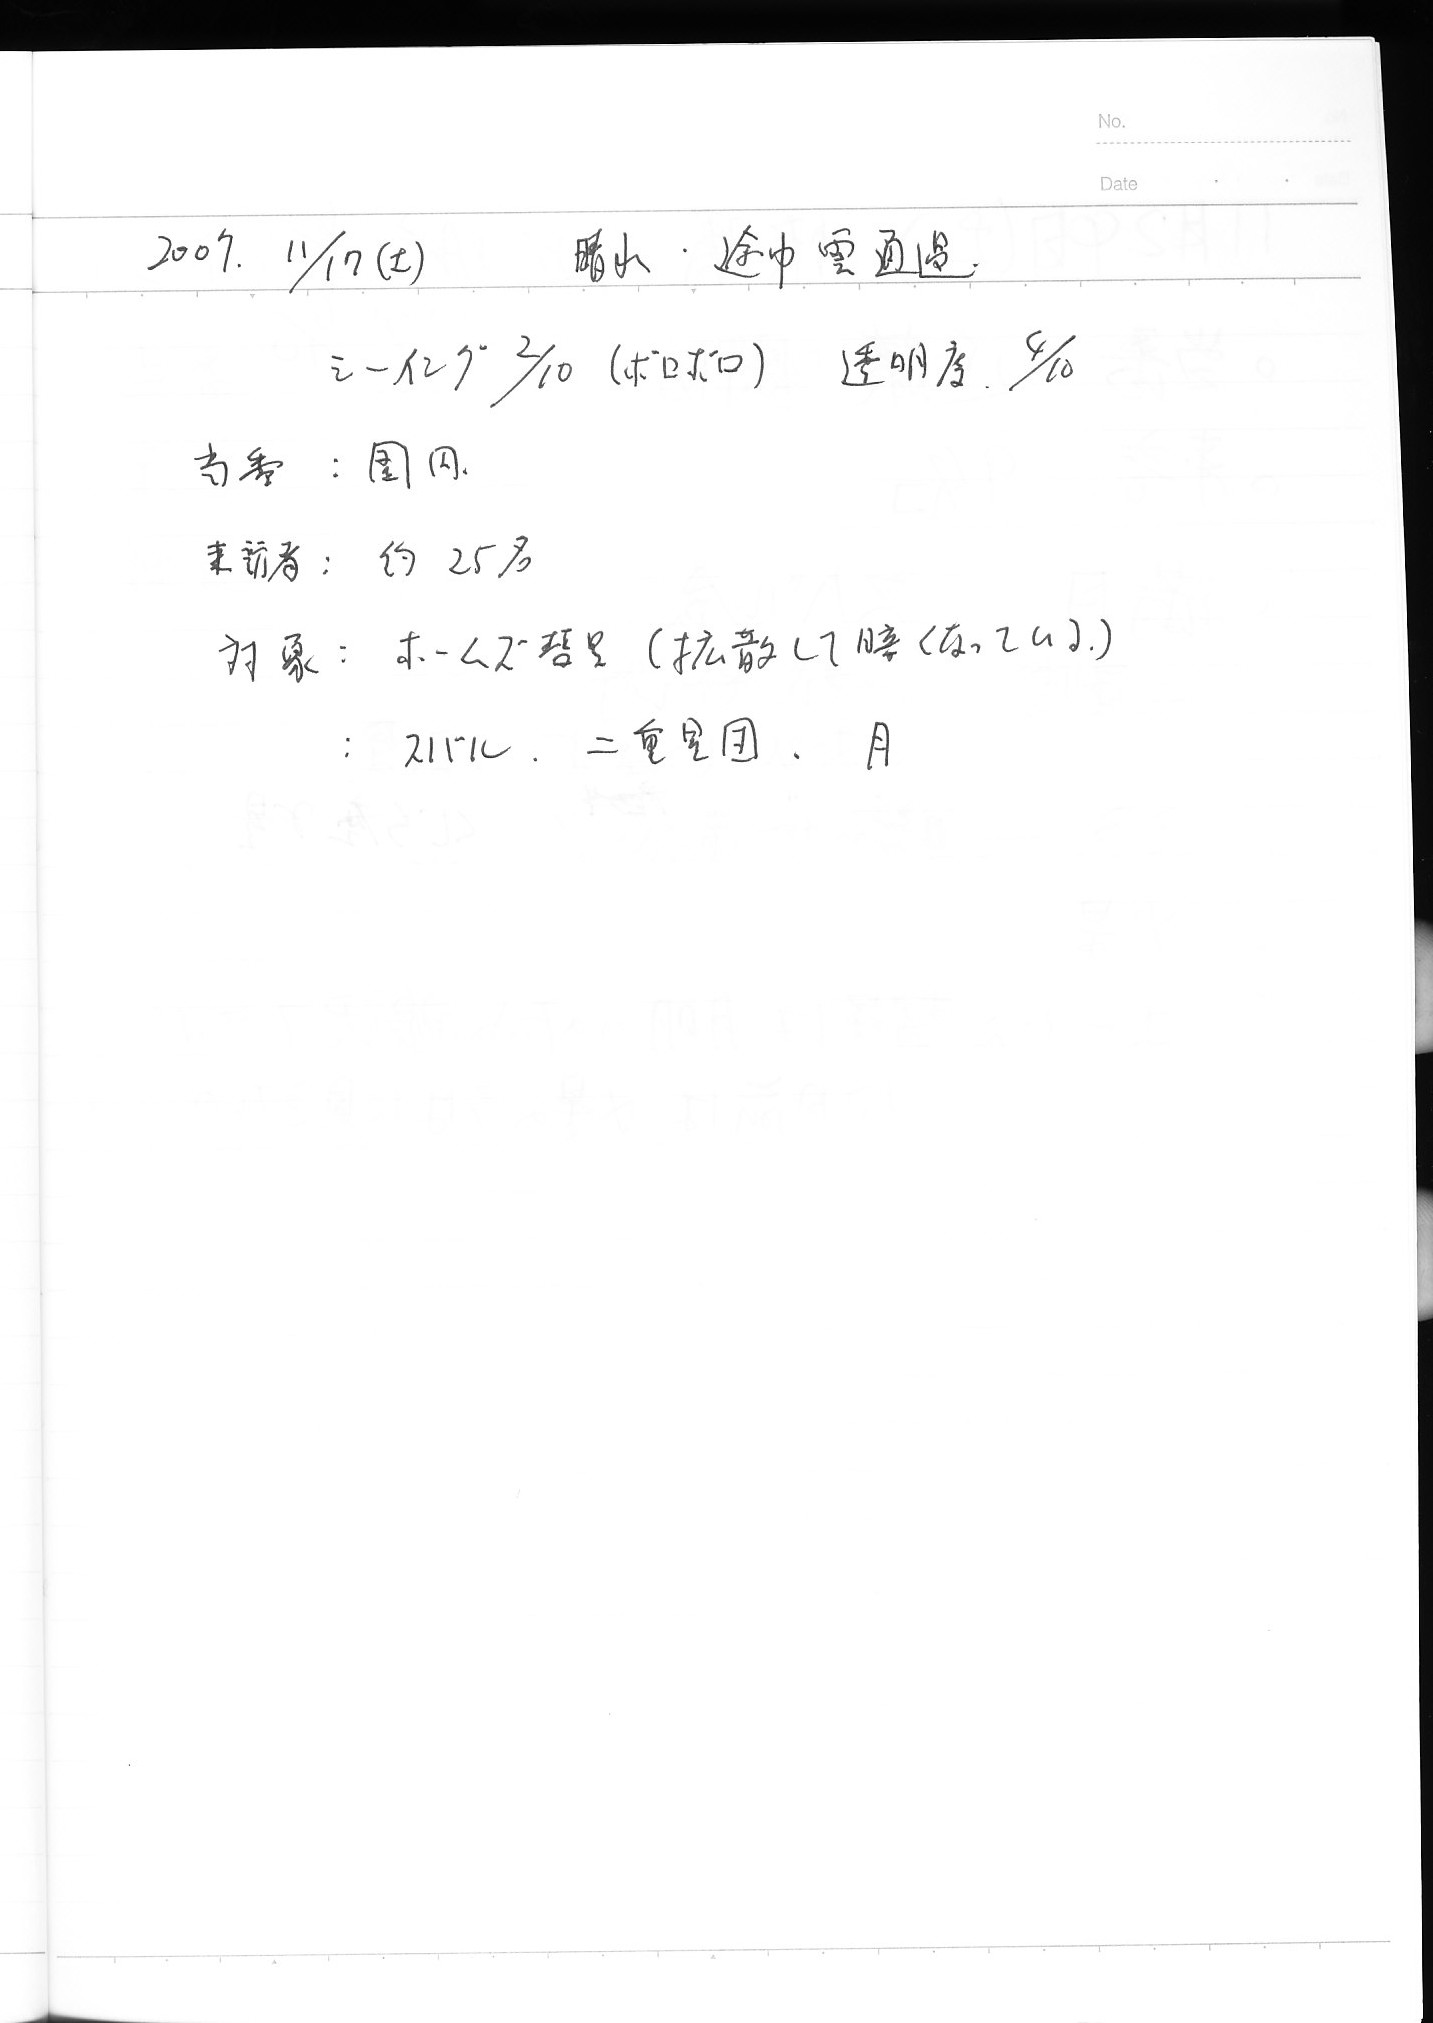 No.
Date
2007. 11/17(土) 晴れ・途中雲通過.
シーイング 2/10 (ボロボロ) 透明度. 4/10
当番 :
来訪者: 約 25名
対象: ホームズ彗星 (拡散して暗くなっている.)
: スバル. 二重星団. 月